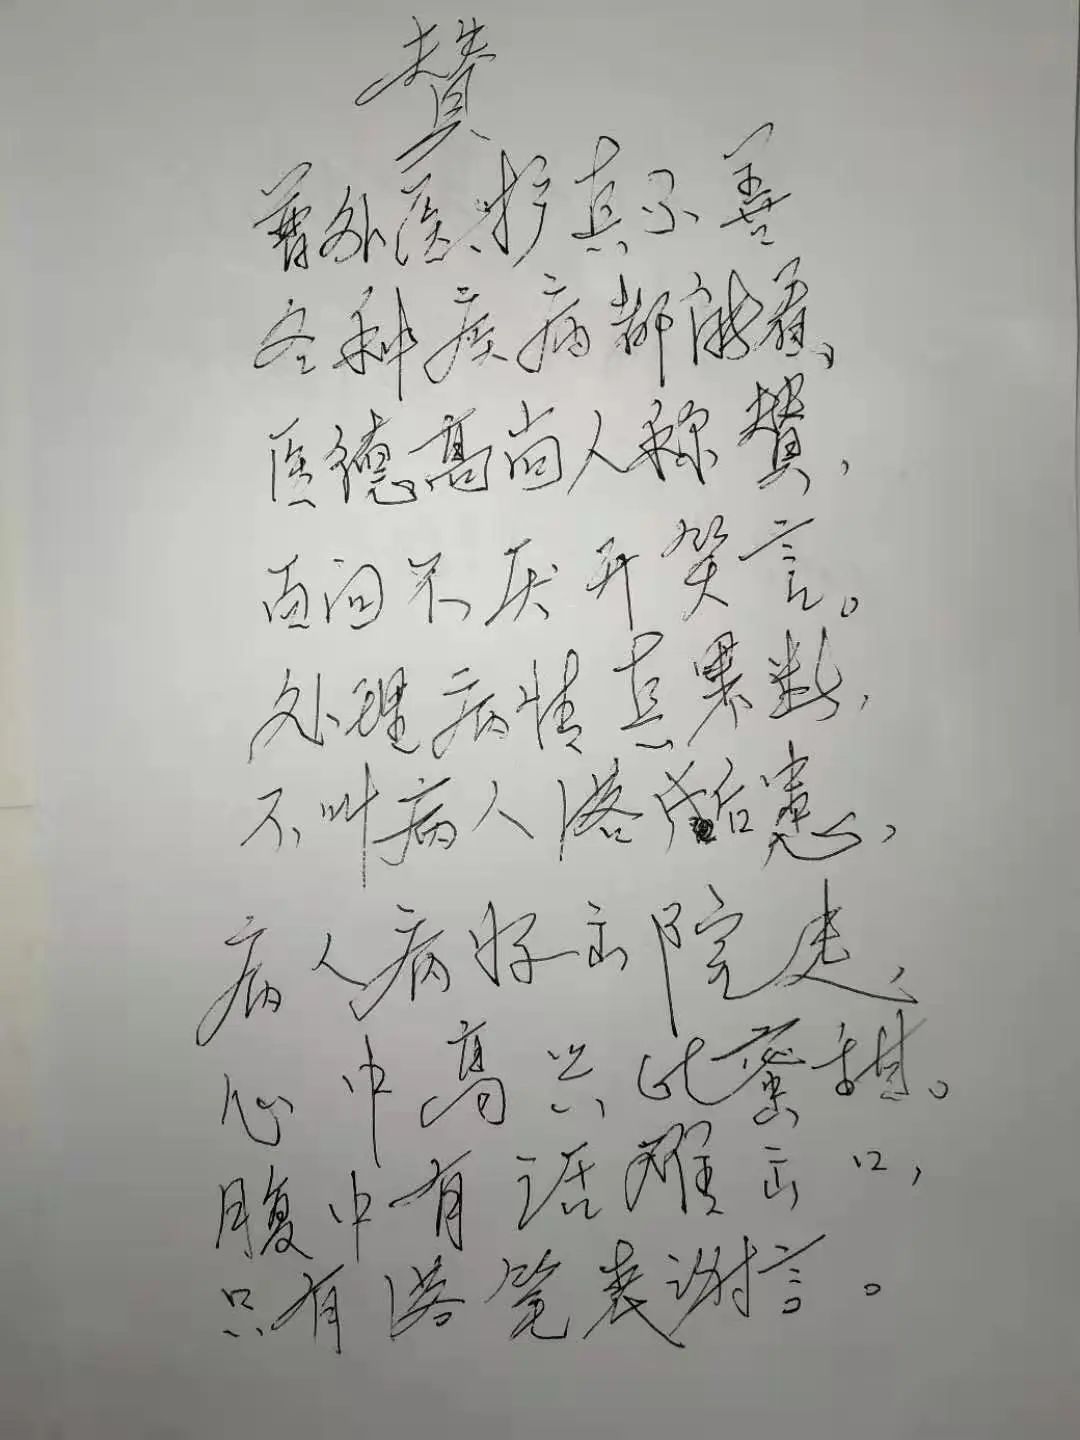 赞
普外医护真不善
各种疾病都能看、
医德高尚人称赞，
百问不厌开笑言。
处理病情真果断，
不叫病人落后患，
病人病好出院走、
心中高兴比蜜甜。
腹中有话难出口，
只有落笔表谢言。